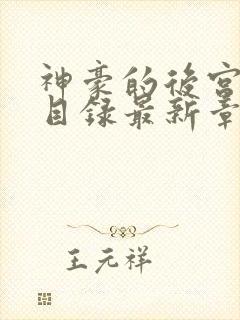 神豪的後宮
目録最新章
王元祥